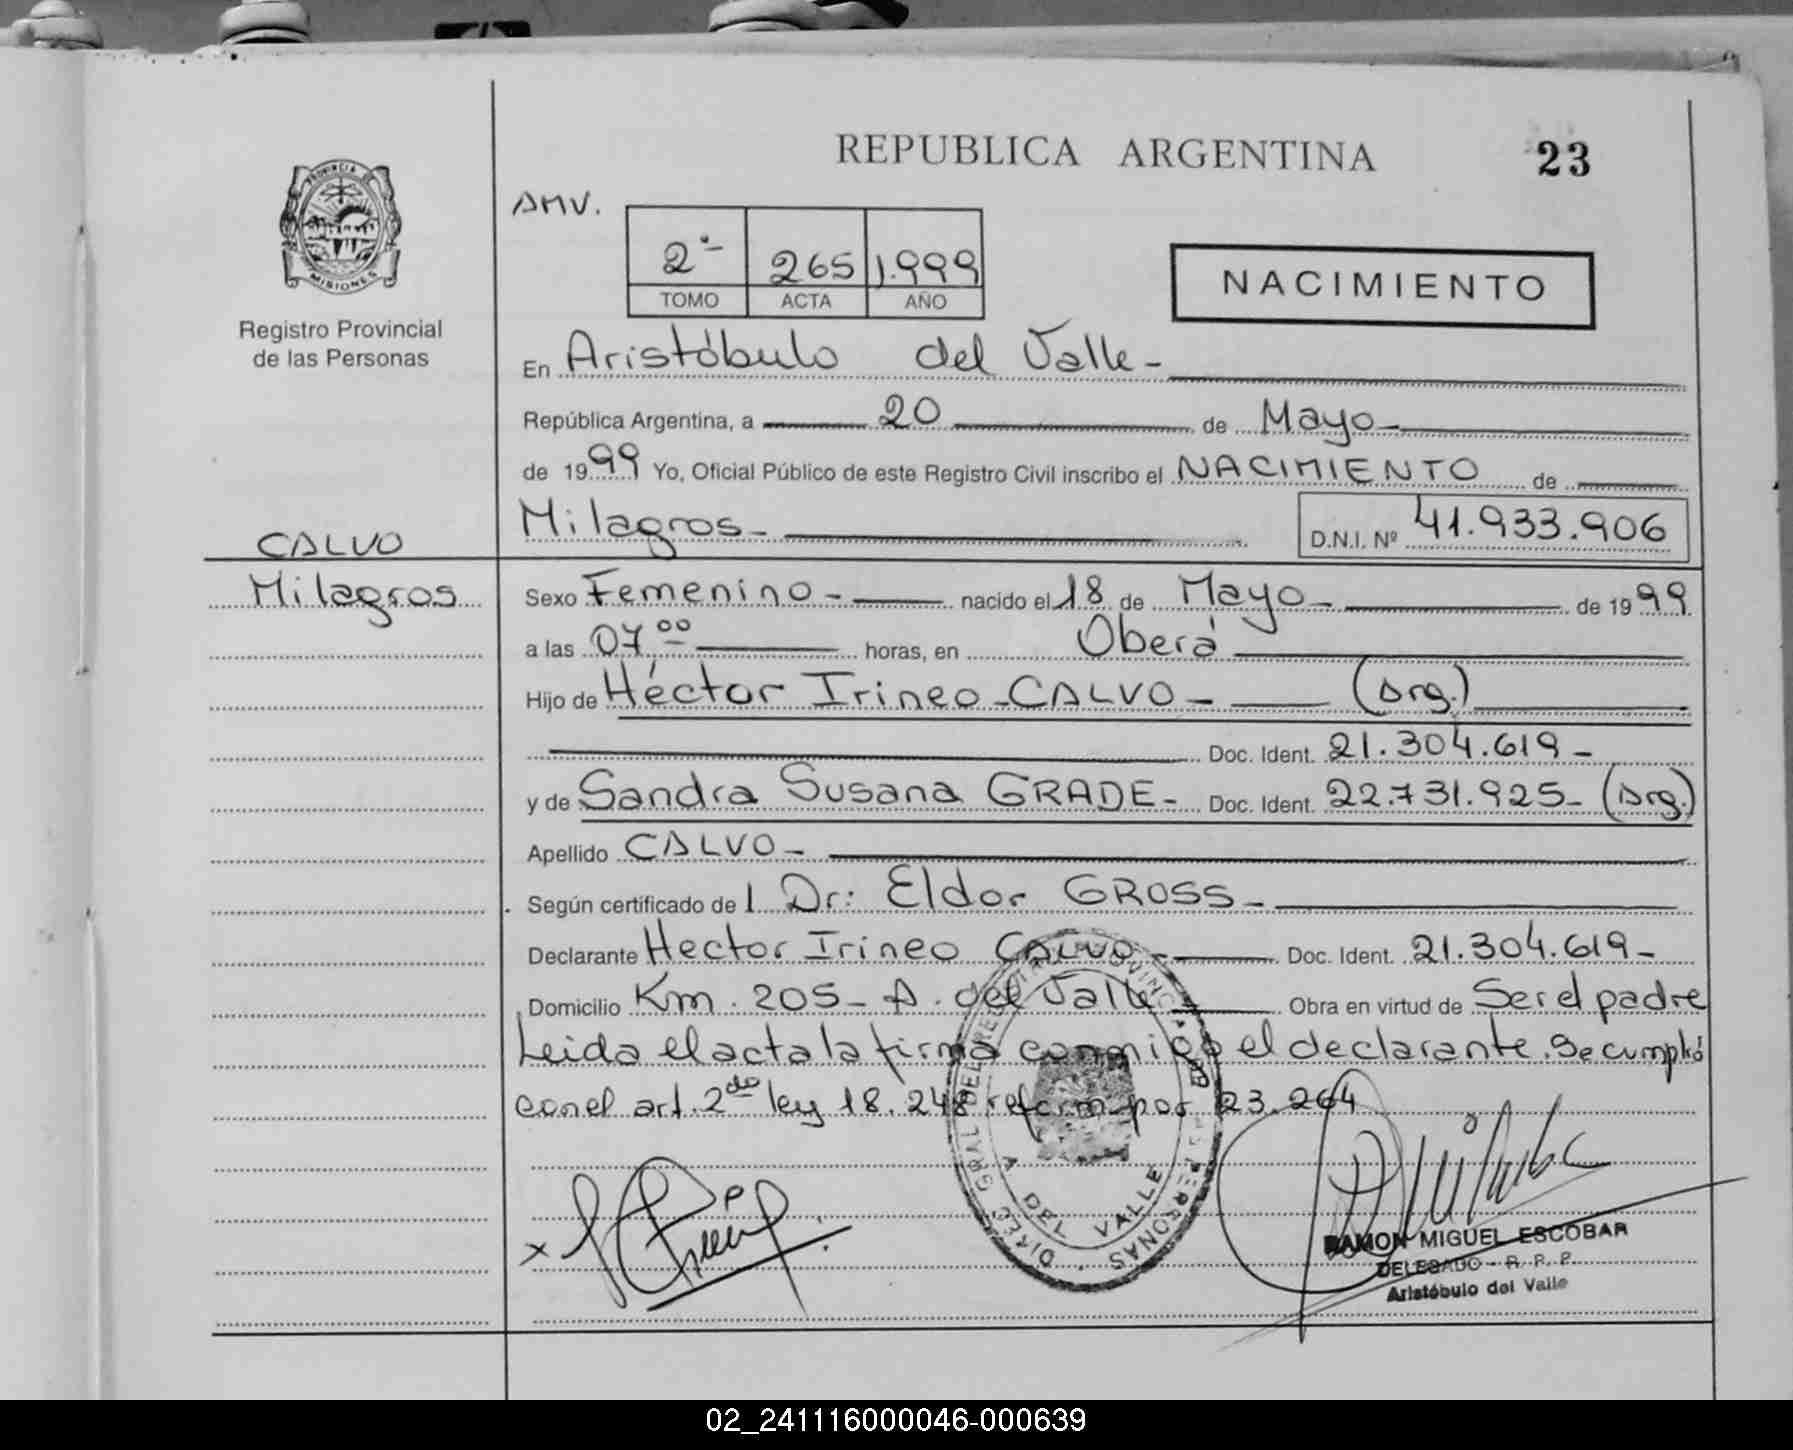 REPUBLICA ARGENTINA
23
PROVINCIA DE
MISIONES
Registro Provincial
de las Personas
AMV.
2º 265 1.999
TOMO ACTA AÑO
NACIMIENTO
En Aristóbulo del Valle-
República Argentina, a 20 de Mayo-
de 1999 Yo, Oficial Público de este Registro Civil inscribo el NACIMIENTO de
Milagros- D.N.I. Nº 41.933.906
CALVO
Milagros
Sexo Femenino- nacido el 18 de Mayo- de 1999
a las 07 00 horas, en Oberá
Hijo de Héctor Irineo-CALVO- (Arg.)
Doc. Ident. 21.304.619-
y de Sandra Susana GRADE- Doc. Ident. 22.731.925- (Arg.)
Apellido CALVO-
Según certificado de l Dr: Eldor GROSS-
Declarante Hector Irineo CALVO- Doc. Ident. 21.304.619-
Domicilio Km. 205- A. del Valle Obra en virtud de Ser el padre
Leida el acta la firma conmigo el declarante. Se cumplió
con el art. 2do ley 18.248 reform por 23.264
DIREC. GRAL DEL REG. PROVINCIAL DE LAS PERSONAS
A DEL VALLE
x
RAMON MIGUEL ESCOBAR
DELEGADO - R. P. P.
Aristóbulo del Valle
02_241116000046-000639